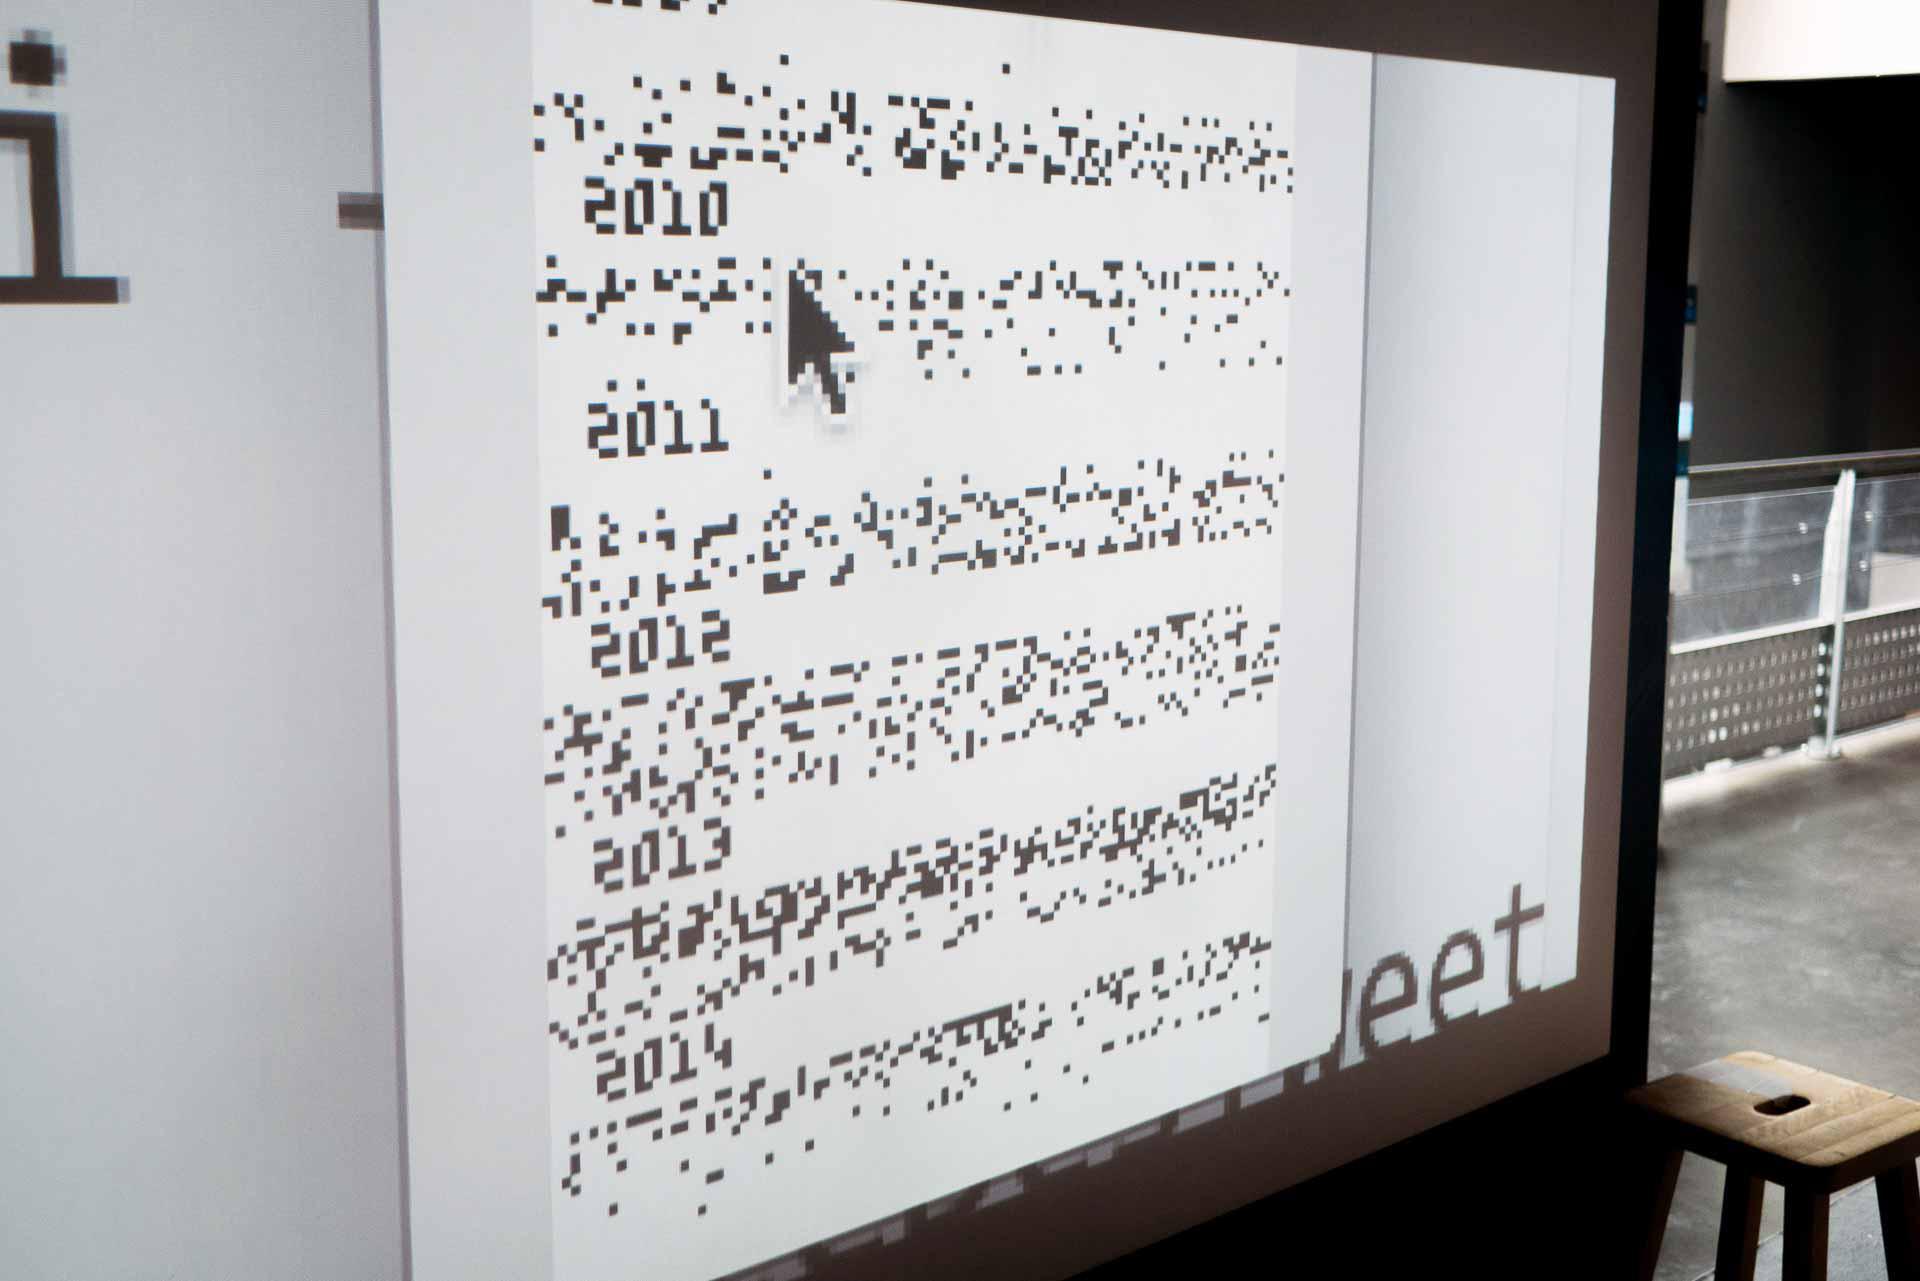 2010
2011
2012
2013
2014